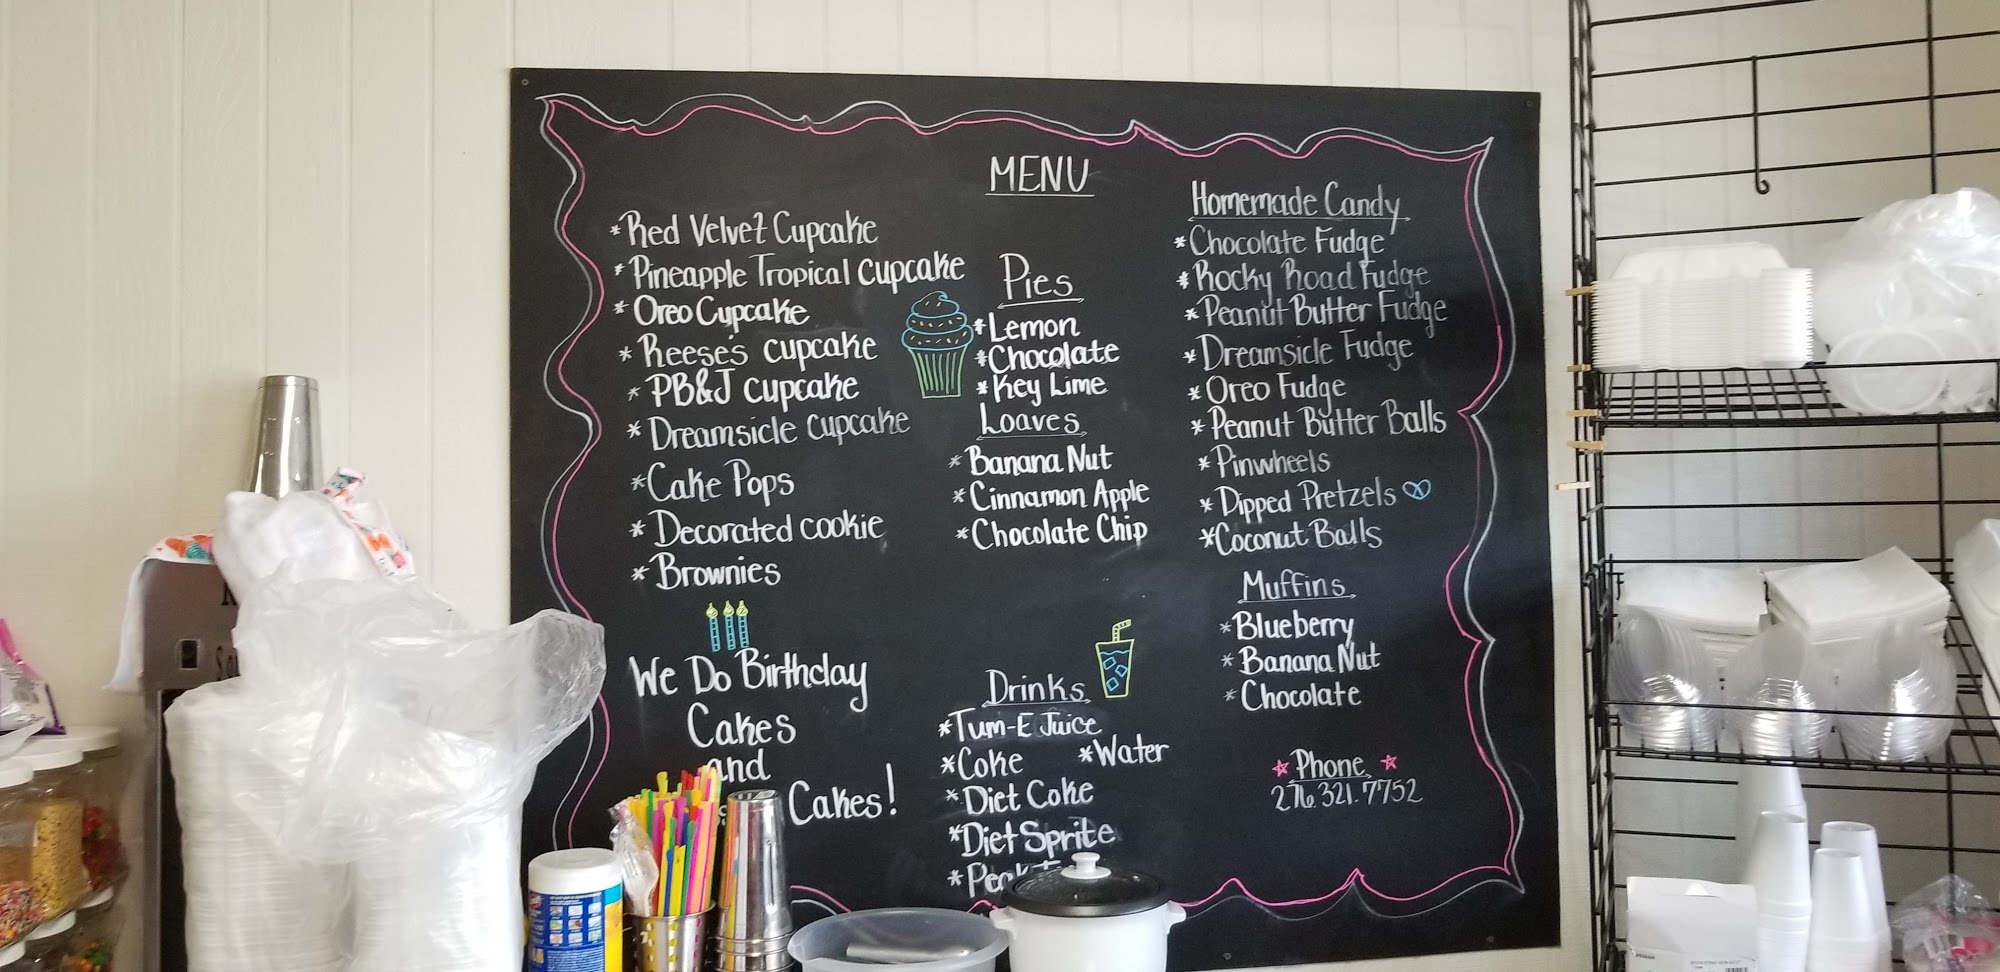 MENU
*Red Velvet Cupcake
*Pineapple Tropical Cupcake
*Oreo Cupcake
*Reese's cupcake
*PB&J cupcake
*Dreamsicle cupcake
*Cake Pops
*Decorated cookie
*Brownies
We Do Birthday
Cakes
and
Cakes!
Pies
*Lemon
*Chocolate
*Key Lime
Loaves
*Banana Nut
*Cinnamon Apple
*Chocolate Chip
Drinks
*Tum-E Juice
*Coke *Water
*Diet Coke
*Diet Sprite
Homemade Candy
*Chocolate Fudge
*Rocky Road Fudge
*Peanut Butter Fudge
*Dreamsicle Fudge
*Oreo Fudge
*Peanut Butter Balls
*Pinwheels
*Dipped Pretzels
*Coconut Balls
Muffins
*Blueberry
*Banana Nut
*Chocolate
Phone
276.321.7752